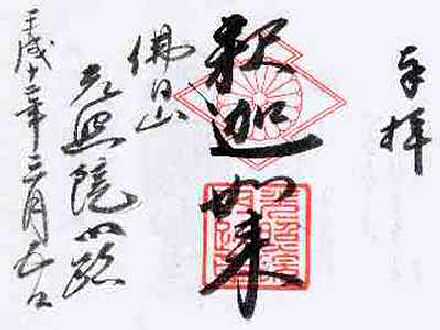 奉拝
釈迦如来
佛日山
光照院门跡
平成十二年三月